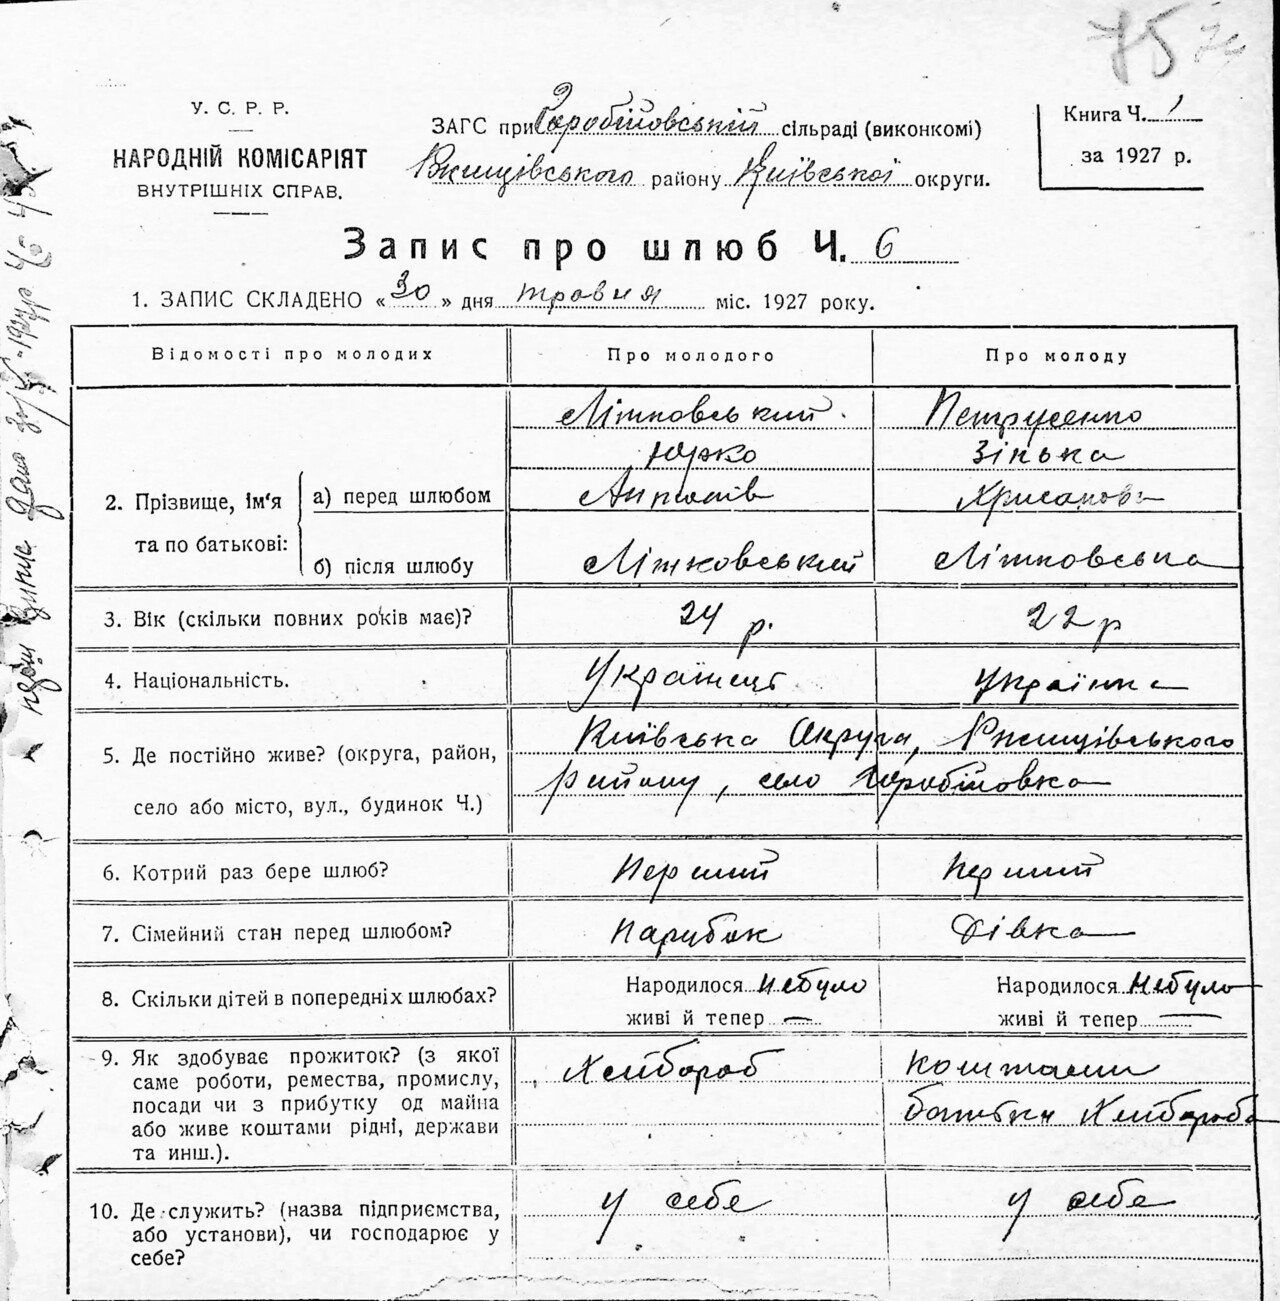 75 74
У. С. Р. Р.
НАРОДНІЙ КОМІСАРІЯТ
ВНУТРІШНІХ СПРАВ.
ЗАГС при сільраді (виконкомі)
Ржищівського району Київської округи.
Книга Ч. 1
за 1927 р.
Запис про шлюб Ч. 6
1. ЗАПИС СКЛАДЕНО « 30 » дня травня міс. 1927 року.
Відомості про молодих Про молодого Про молоду
2. Прізвище, ім'я та по батькові:
а) перед шлюбом
Літковський Петрусенко
Юрко Зінька
Антонів Хрисанова
б) після шлюбу Літковський Літковська
3. Вік (скільки повних років має)? 24 р. 22 р
4. Національність. Українец українка
5. Де постійно живе? (округа, район, Київська Округа, Ржищівського
село або місто, вул., будинок Ч.) району, село
6. Котрий раз бере шлюб? Перший перший
7. Сімейний стан перед шлюбом? Парубок Дівка
8. Скільки дітей в попередніх шлюбах? Народилося небуло Народилося небуло
живі й тепер — живі й тепер —
9. Як здобуває прожиток? (з якої
саме роботи, ремества, промислу,
посади чи з прибутку од майна
або живе коштами рідні, держави
та инш.).
Хлібороб коштами
батька Хлібороба
10. Де служить? (назва підприємства,
або установи), чи господарює у
себе?
у себе у себе